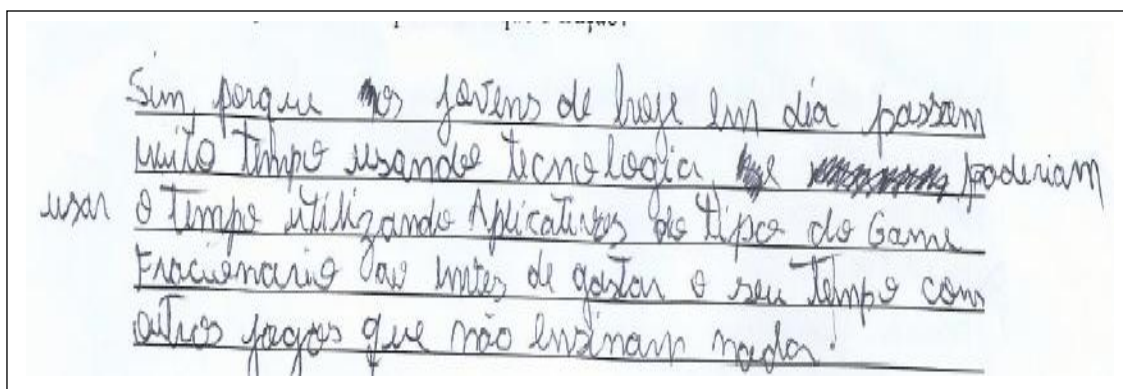 Sim, porque os jovens de hoje em dia passam
muito tempo usando tecnologia e poderiam
usar o tempo utilizando Aplicativos do tipo do Game
Fracionario ao invés de gastar o seu tempo com
outros jogos que não ensinam nada.